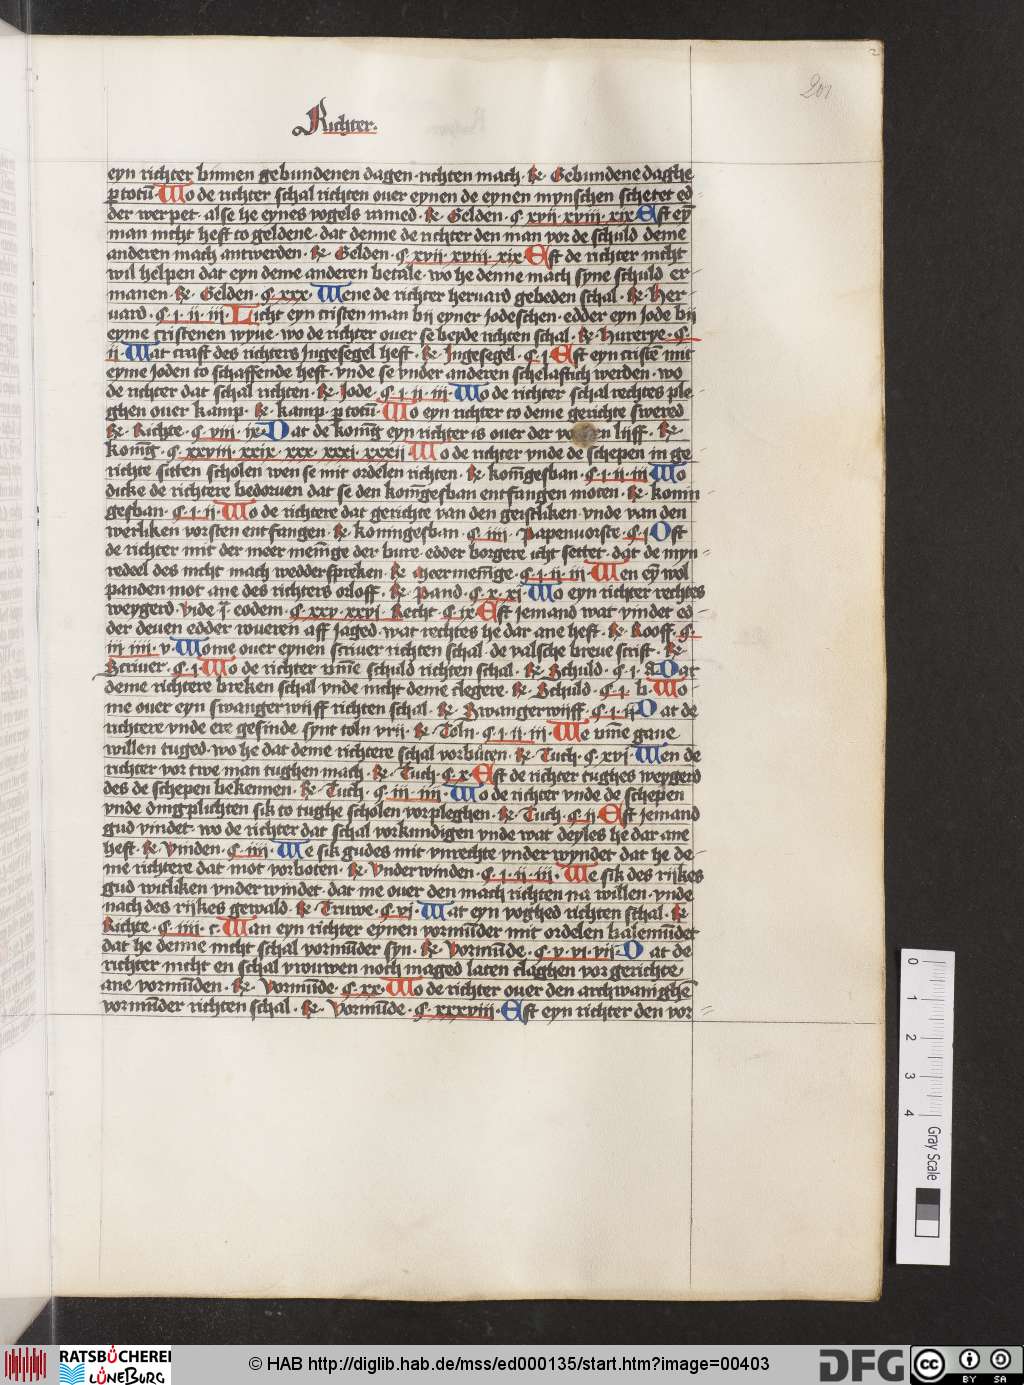 201
Richter.
eyn richter binnen gebundenen dagen · richten mach · Re · Gebundene daghe
p totū · Wo de richter schal richten ouer eynen de eynen mynschen schetet ed
der werpet · alse he eynes vogels ramed · Re · Gelden · C · xvij · xviij · xix Est eȳ
man nicht heft to geldene · dat denne de richter den man vor de schuld deme
anderen mach antwerden · Re · Gelden · C · xvij · xviij · xix Est de richter nicht
wil helpen dat eyn deme anderen betale · wo he denne mach syne schuld er-
manen · Re · Gelden · C · xxx · Wene de richter heruard gebeden schal · Re · Her-
uard · C · i · ii · iii · Licht eyn cristen man bij eyner Jodeschen · edder eyn Jode bij
eyme cristenen wyue · wo de richter ouer se beyde richten schal · Re · Hurerye · C ·
ii · Wat craft des richters Jngesegel heft · Re · Jngesegel · C · i Est eyn cristē mit
eyme Joden to schaffende heft · vnde se vnder anderen schelaftich werden · wo
de richter dat schal richten · Re · Jode · C · i · ii · iii · Wo de richter schal rechtes ple-
ghen ouer kamp · Re · kamp · p totū · Wo eyn richter to deme gerichte swered
Re · Richte · C · viii · ix · Dat de konīg eyn richter is ouer der lijff · Re ·
konīg · C · xxviii · xxix · xxx · xxxi · xxxii Wo de richter vnde de schepen in ge
richte sitten scholen wen se mit ordelen richten · Re · konīgesban · C · i · ii · iii · Wo
dicke de richtere bedoruen dat se den konīgesban entfangen moten · Re · konin-
gesban · C · i · ii · Wo de richtere dat gerichte van den geistliken vnde van den
werliken vorsten entfangen · Re · koningesban · C · iiii · Papenuorste · C · i Oft
de richter mit der meer menīge der bure · edder borgere icht settet · dat de myn-
redeel des nicht mach wedderspreken · Re · Meer menīge · C · i · ii · iii · Men eȳ wol
panden mot ane des richters orloff · Re · Pand · C · x · xi · Wo eyn richter rechtes
weygerd · Vnde ī eodem · C · xxv · xxvi · Recht · C · ix Est jemand wat vindet ed-
der deuen edder roueren aff jaged · wat rechtes he dar ane heft · Re · Rooff · C ·
iii · iiii · v · Wome ouer eynen scriuer richten schal · de valsche breue scrift · Re ·
Scriuer · C · i · Wo de richter vm̄e schuld richten schal · Re · Schuld · C · i · a Dat
deme richtere breken schal vnde nicht deme clegere · Re · Schuld · C · i · b · Wo-
me ouer eyn swanger wijff richten schal · Re · Swanger wijff · C · i · ii Dat de
richtere vnde ere gesinde synt toln vrij · Re · Toln · C · i · ii · iii · We vm̄e gaue
willen tuged · wo he dat deme richtere schal vorbůten · Re · Tuch · C · xvi · Wen de
richter vor twe man tughen mach · Re · Tuch · C · x · Est de richter tughes weygerd
des de schepen bekennen · Re · Tuch · C · iii · iiii · Wo de richter vnde de schepen
vnde dingplichten sik to tughe scholen vorpleghen · Re · Tuch · C · ii Est jemand
gud vindet · wo de richter dat schal vorkundigen vnde wat deyles he dar ane
heft · Re · Vinden · C · iiii · We sik gudes mit vnrechte vnder wyndet dat he de-
me richtere dat mot vorboten · Re · Vnderwinden · C · i · ii · iii · We sik des rijkes
gud witliken vnder windet · dat me ouer den mach richten na willen · vnde
nach des rijkes gewald · Re · Truwe · C · vi · Wat eyn voghed richten schal · Re
Richte · C · iiii · c · Wan eyn richter eynen vormūder mit ordelen balemūdet
dat he denne nicht schal vormūder syn · Re · Vormūde · C · v · vi · vii · Dat de
richter nicht en schal vrouwen noch maged laten claghen vor gerichte
ane vormūden · Re · Vormūde · C · xx · Wo de richter ouer den archwanighē
vormūder richten schal · Re · Vormūde · C · xxxviii · Est eyn richter den vor =
0
1
2
3
4
Gray Scale
RATSBÜCHEREI
LÜNEBURG
© HAB http://diglib.hab.de/mss/ed000135/start.htm?image=00403
DFG
cc
BY SA